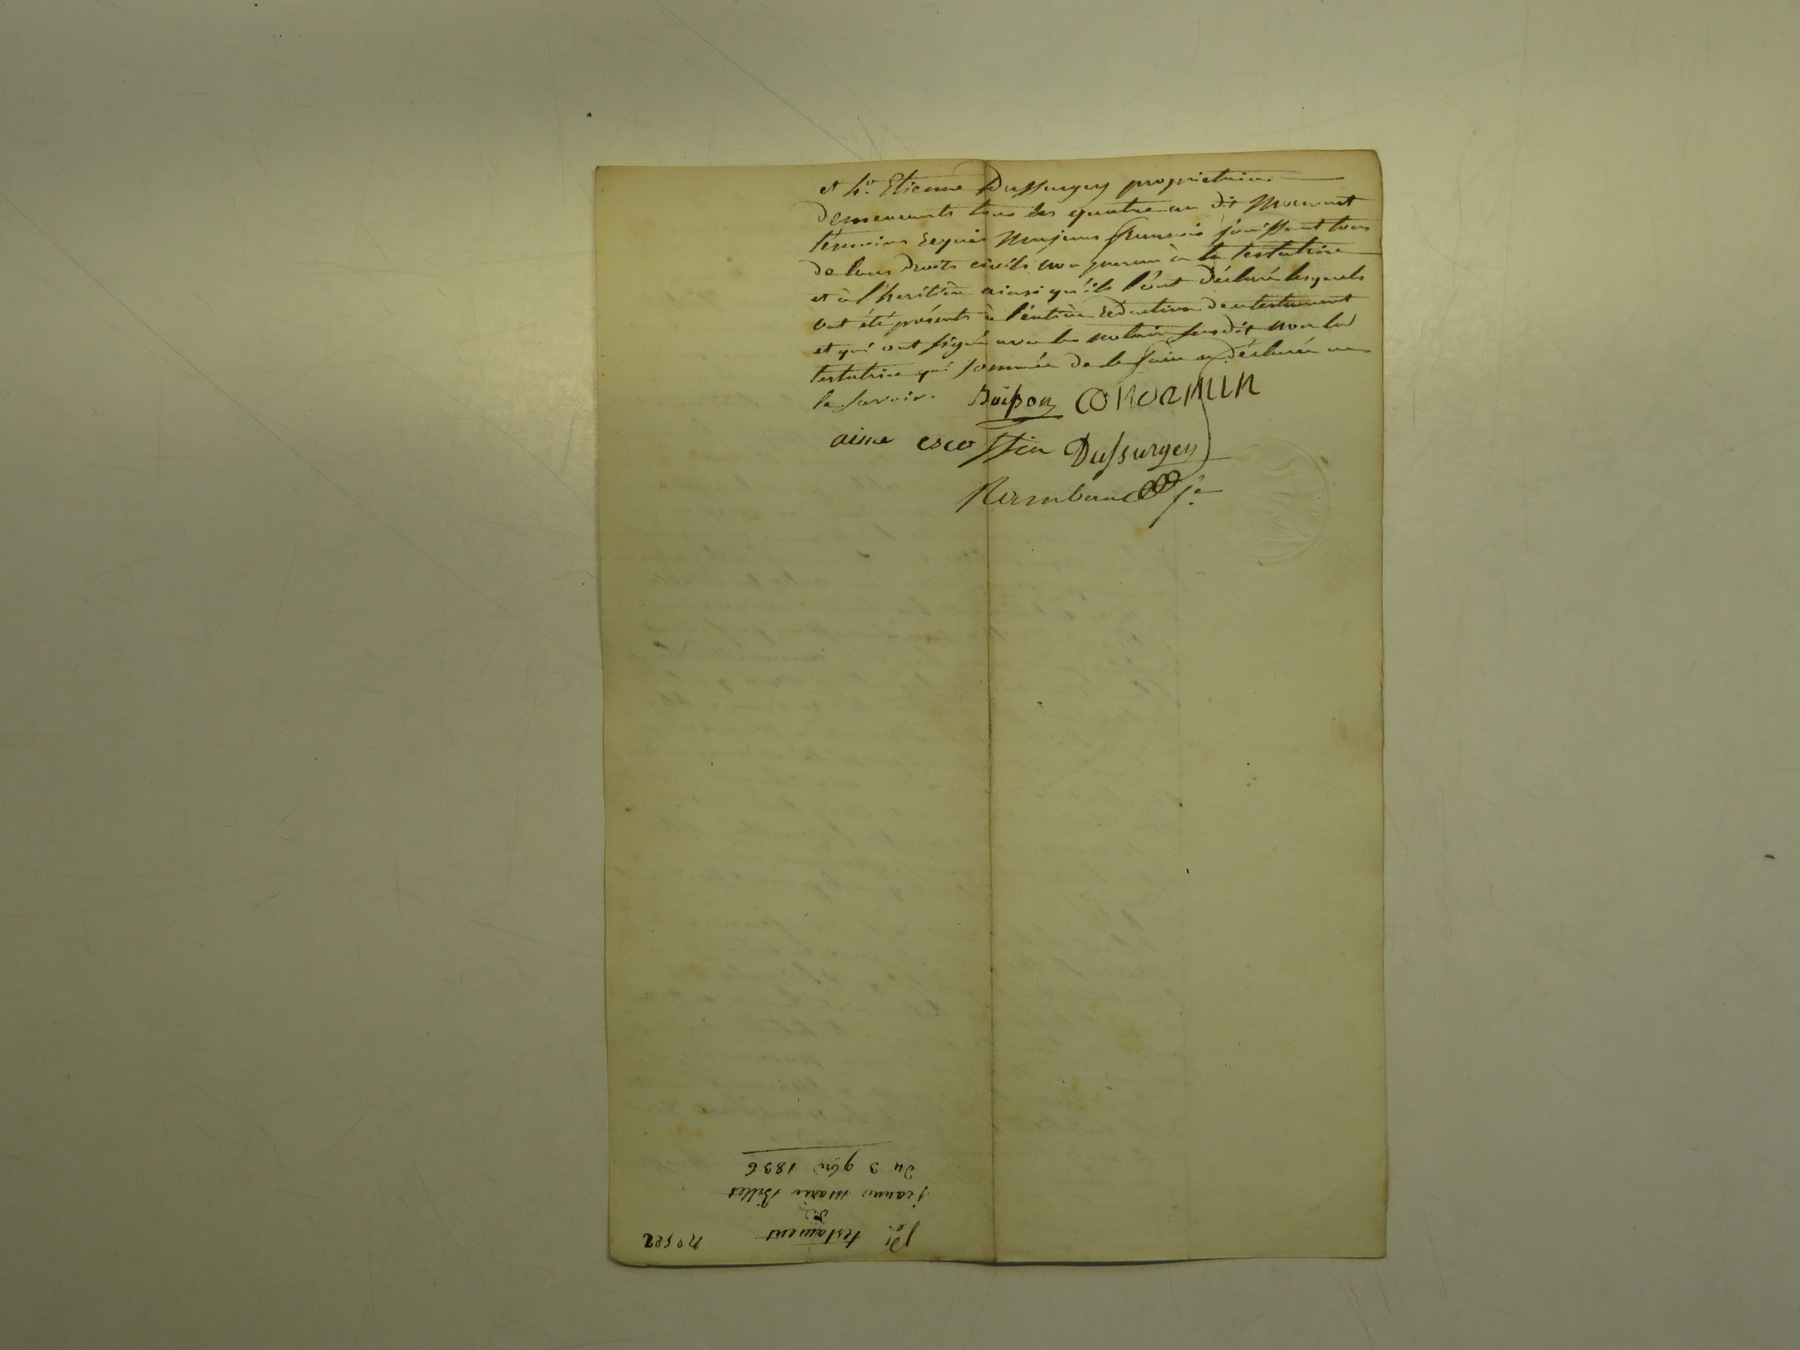 et sr. Etienne Dussurgey propriétaire
demeurants tous les quatre au dit Mornant
témoins requis majeurs français jouissant tous
de leurs droits civils non parens à la testatrice
et à l'héritière ainsi qu'ils l'ont déclaré lesquels
ont été présents à l'entière rédaction du testament
et qui ont signé avec le notaire susdit non la
testatrice qui sommée de le faire a déclaré ne
le savoir.
Boisson CONORMIN
aime escoffier Dussurgey
Rambaud
Nº 522
testament
de
jeanne marie Billet
du 3 9bre 1836